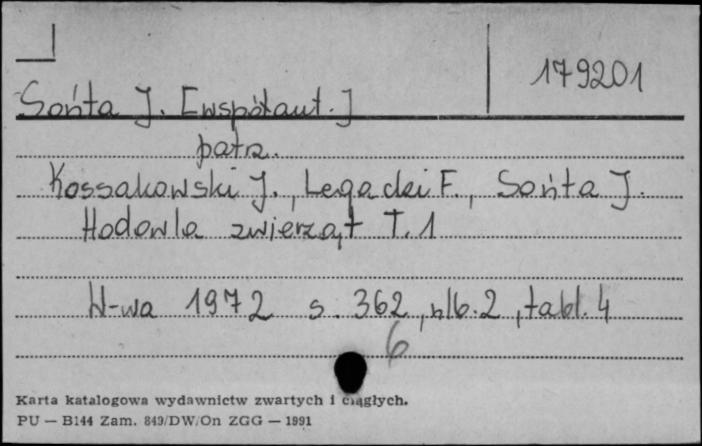 179201
Sońta J. [współaut.]
patrz.
Kossakowski J., Legacki F., Sońta J.
Hodowla zwierząt T. 1
W-wa 1972 s. 362, nlb. 2, tabl. 4
6
Karta katalogowa wydawnictw zwartych i ciągłych.
PU — B144 Zam. 849/DW/On ZGG — 1991